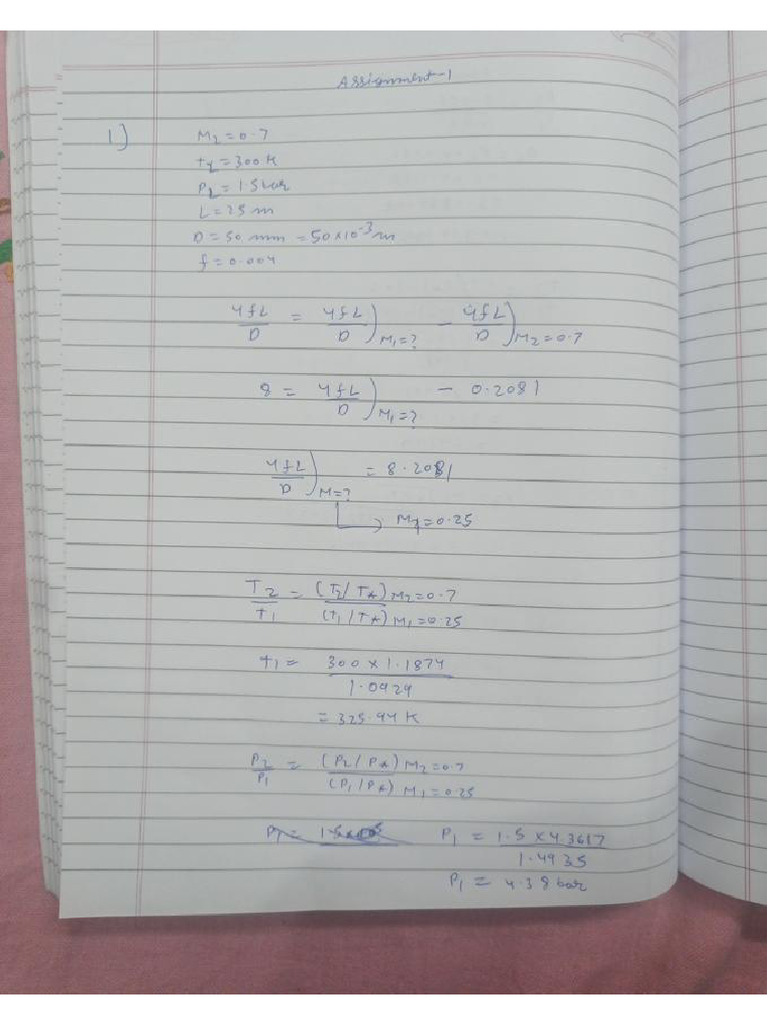 Assignment-1
1]
M2 = 0.7
T2 = 300 K
P2 = 1.5 bar
L = 25 m
D = 50 mm = 50×10⁻³ m
f = 0.004
4fL/D = 4fL/D)M1=? − 4fL/D)M2=0.7
8 = 4fL/D)M1=? − 0.2081
4fL/D)M=? = 8.2081
↳ M1 = 0.25
T2/T1 = (T2/T*)M2=0.7 / (T1/T*)M1=0.25
T1 = 300 × 1.1874 / 1.0929
= 325.94 K
P2/P1 = (P2/P*)M2=0.7 / (P1/P*)M1=0.25
P1 = 1.5 × 4.3617 / 1.4935
P1 = 4.38 bar